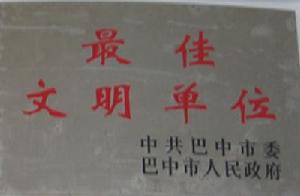 最佳
文明单位
中共巴中市委
巴中市人民政府